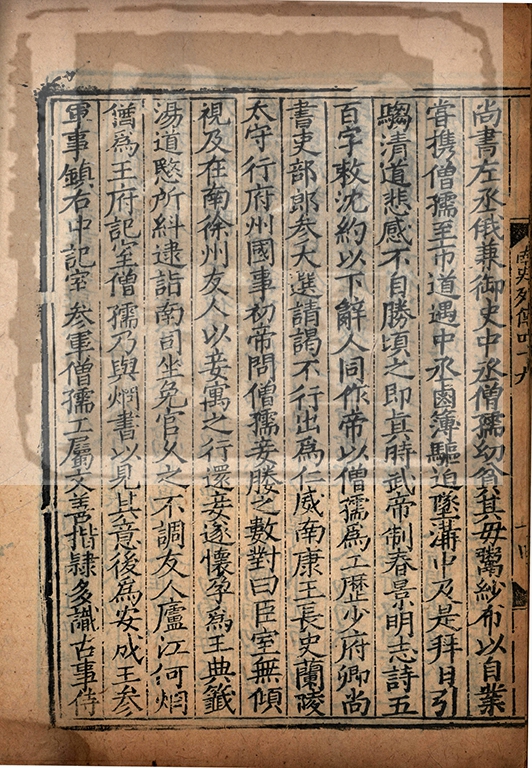 尚書左丞俄兼御史中丞僧孺幼貧其母鬻紗布以自業
甞携僧孺至市道遇中丞鹵簿驅迫墜溝中及是拜日引
騶清道悲感不自勝頃之即真時武帝制春景明志詩五
百字敕沈約以下辭人同作帝以僧孺為工歷少府卿尚
書吏部郎參大選請謁不行出為仁威南康王長史蘭陵
太守行府州國事初帝問僧孺妾媵之數對曰臣室無傾
視及在南徐州友人以妾寓之行還妾遂懷孕為王典籤
湯道愍所糾逮詣南司坐免官久之不調友人廬江何烱
猶為王府記室僧孺乃與烱書以見其意後為安成王參
軍事鎮右中記室參軍僧孺工屬文善楷隷多識古事侍
南史列傳四十九